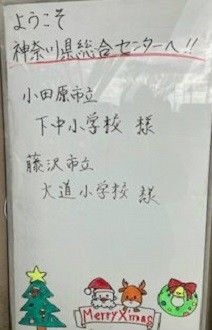 ようこそ
神奈川県総合センターへ!!
小田原市立
下中小学校 様
藤沢市立
大道小学校 様
Merry Xmas